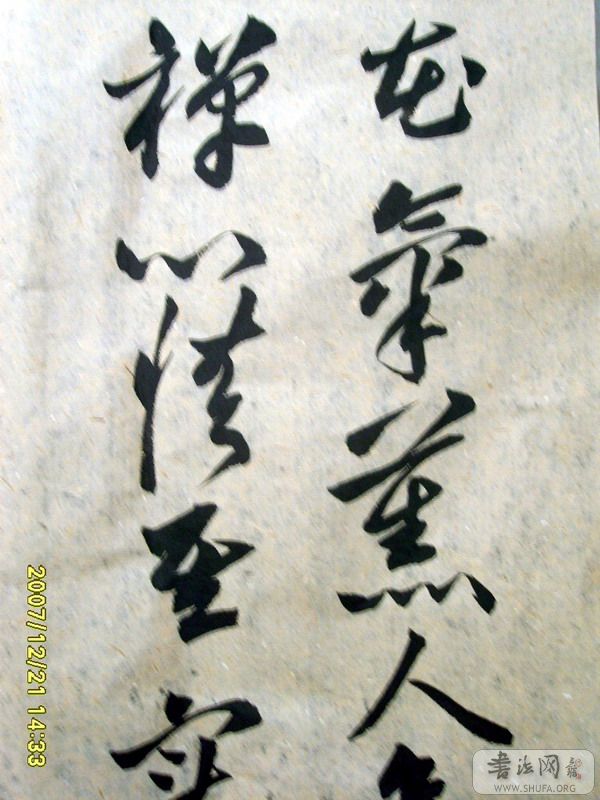 花氣薰人
禪心情其實
2007/12/21 14:33
書法网
WWW.SHUFA.ORG